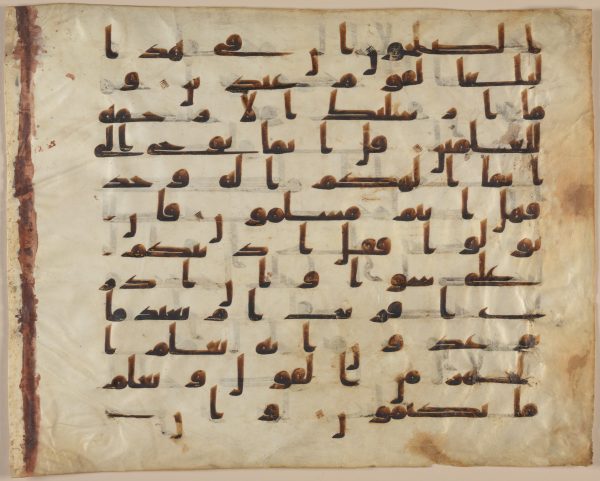 الصلحون ان في هذا
لبلغا لقوم عبدين و
ما ارسلنك الا رحمه
للعلمين قل انما يوحى الي
انما الهكم اله وحد
فهل انتم مسلمون فان
تولوا فقل اذنتكم
على سوا وان ادر
ي اقريب ام بعيد ما
توعدون انه يعلم ا
لجهر من القول ويعلم
ما تكتمون وان ادري